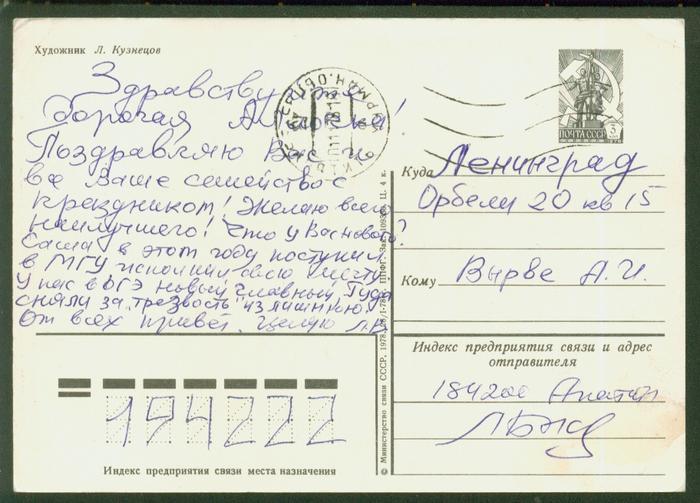 Художник Л. Кузнецов
Здравствуйте
дорогая
Поздравляю Вас и
все Ваше семейство с
праздником! Желаю всего
наилучшего! Что у Вас нового?
Саша в этом году поступил
в МГУ исполнил свою мечту
У нас в ОГЭ новый главный, Гуда
сняли за трезвость из лишнюю.
От всех привет. Целую
ПОЧТА СССР
Куда Ленинград
Орбели 20 кв 15
Кому Вырве А. И.
Индекс предприятия связи и адрес
отправителя
184200 Апатиты
194222
Индекс предприятия связи места назначения
© Министерство связи СССР, 1978.
Ц. 4 к.